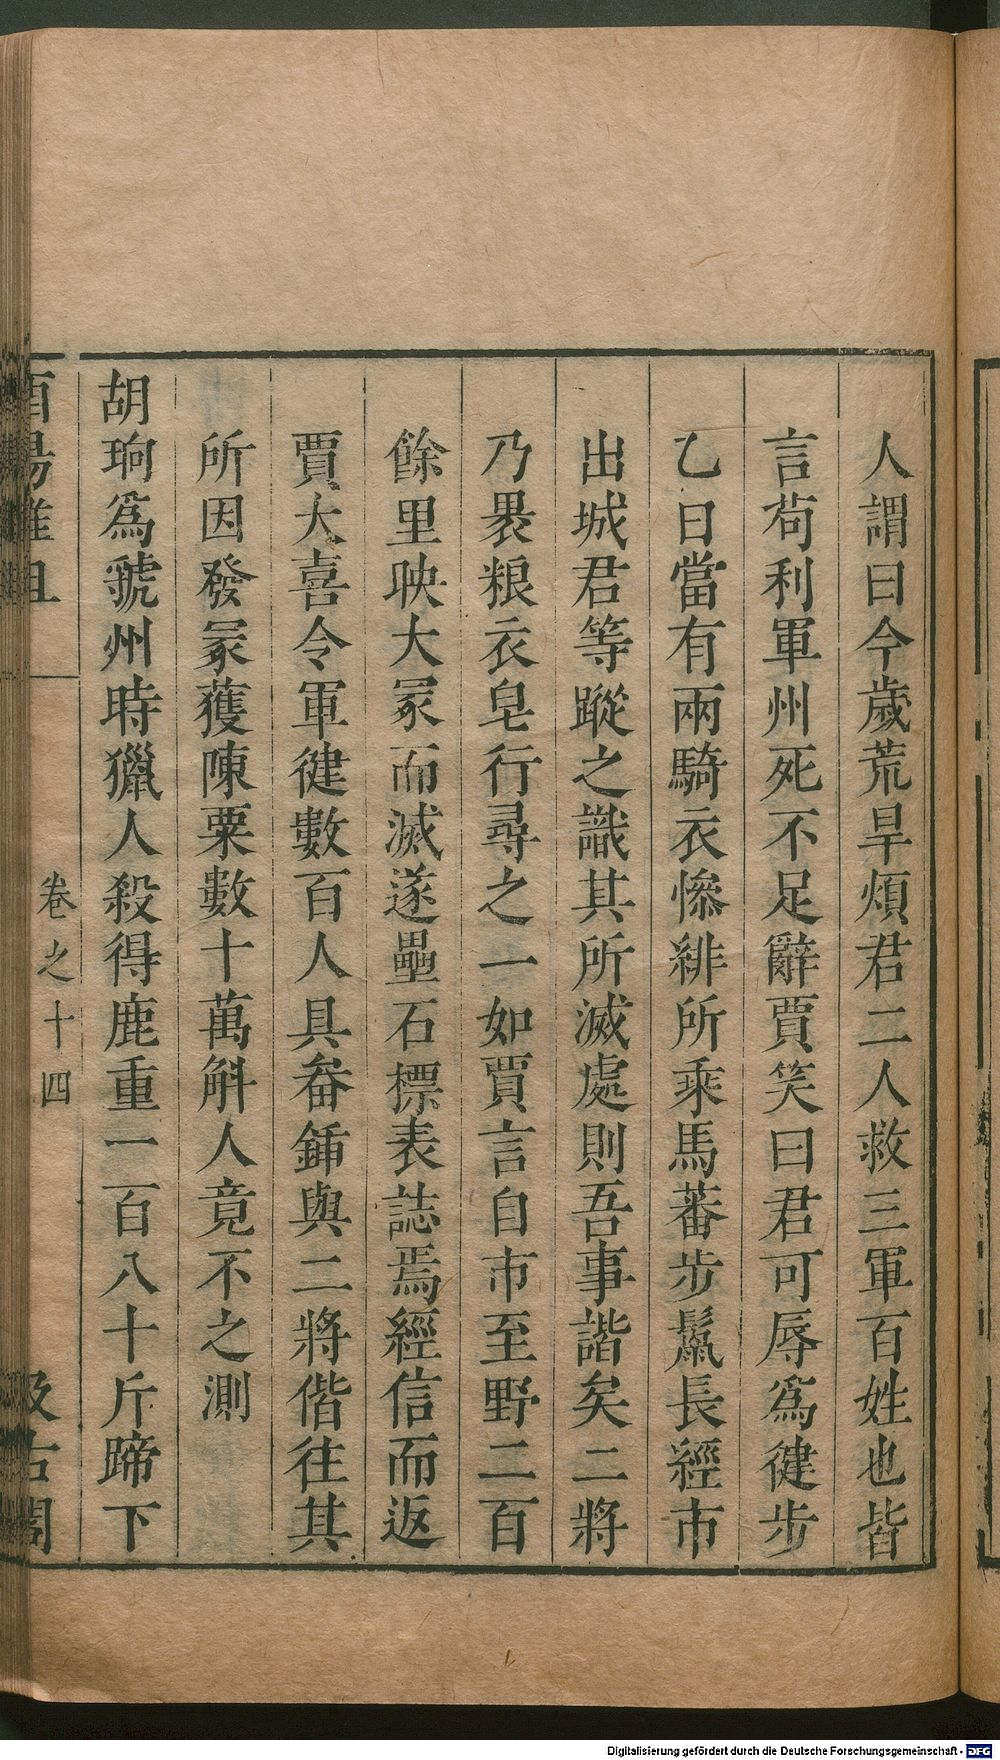 人謂曰今歲荒旱煩君二人救三軍百姓也皆
言茍利軍州死不足辭賈笑曰君可辱爲徤步
乙日當有兩騎衣慘緋所乘馬蕃步鬣長經市
出城君等蹤之識其所滅處則吾事諧矣二將
乃褁粮衣皂行尋之一如賈言自市至野二百
餘里映大冢而滅遂壘石標表誌焉經信而返
賈大喜令軍徤數百人具畚鍤與二將偕往其
所因發冢獲陳粟數十萬斛人竟不之測
胡珦爲虢州時獵人殺得鹿重一百八十斤蹄下
酉陽雜俎
卷之十四
汲古閣
Digitalisierung gefördert durch die Deutsche Forschungsgemeinschaft - DFG